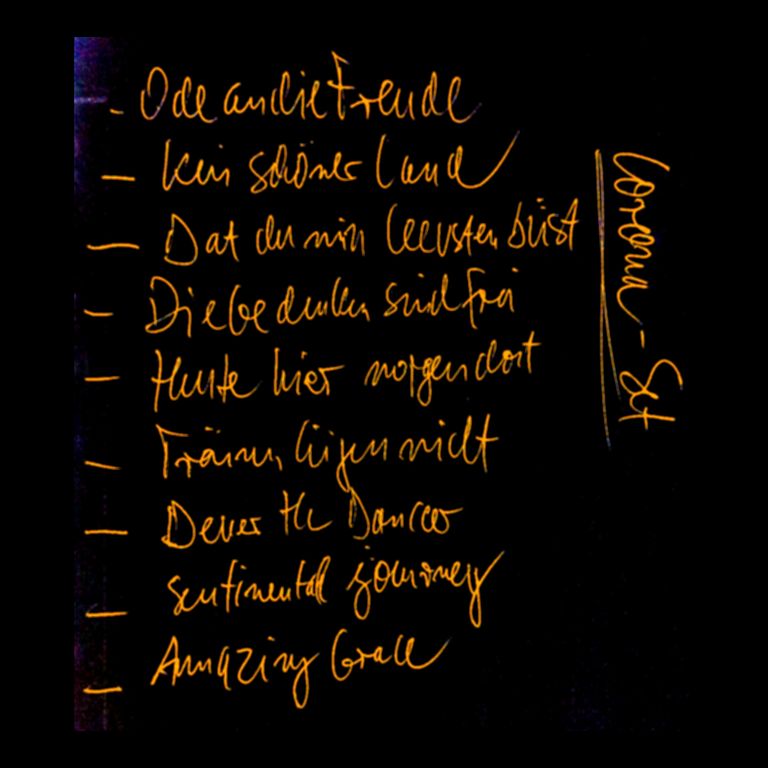 - Ode an die Freude
- Kein schöner Land
- Dat du min leevsten büst
- Die Gedanken sind frei
- Heute hier morgen dort
- Träume lügen nicht
- Dever the Dancer
- Sentimental journey
- Amazing Grace
Corona-Set